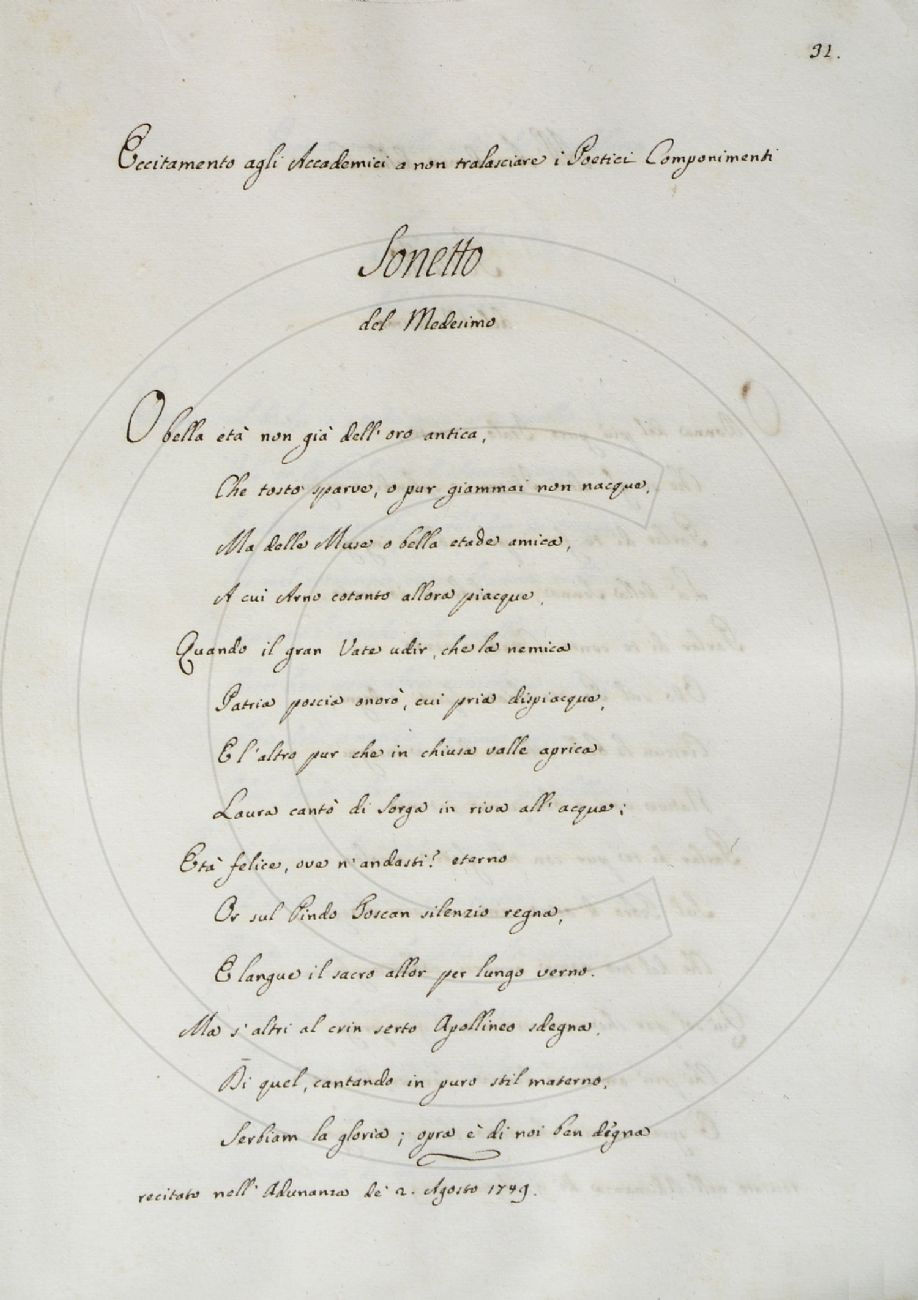 31.
Eccitamento agli Accademici a non tralasciare i Poetici Componimenti
Sonetto
del Medesimo
O bella età non già dell'oro antica,
Che tosto sparve, o pur giammai non nacque,
Ma delle Muse o bella etade amica,
A cui Arno cotanto allora piacque,
Quando il gran Vate udir, che la nemica
Patria poscia onorò, cui pria dispiacque,
E l'altro pur che in chiusa valle aprica
Laura cantò di Sorga in riva all'acque;
Età felice, ove n'andasti? eterno
Or sul Pindo Toscan silenzio regna,
E langue il sacro allor per lungo verno.
Ma s'altri al crin serto Apollineo sdegna,
Di quel, cantando in puro stil materno,
Serbiam la gloria; opra è di noi ben degna
recitato nell'Adunanza de' 2. Agosto 1749.